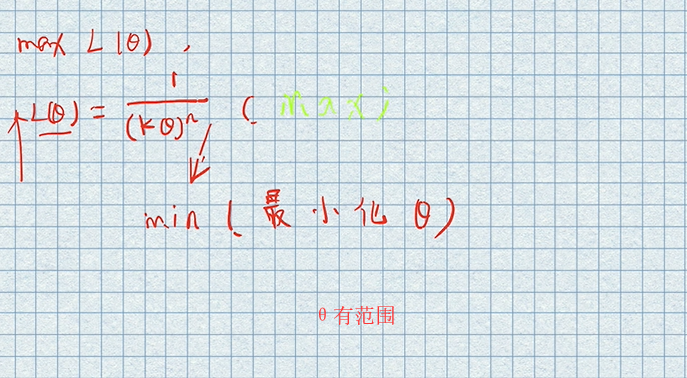 max L(θ),
L(θ) = 1/(kθ)^n ( max
min (最小化 θ)
θ有范围